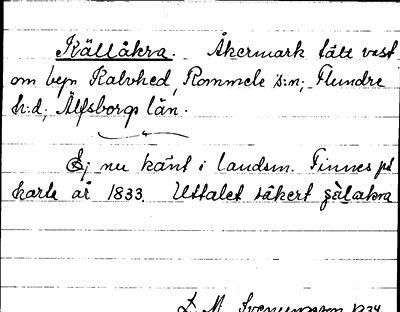 Källåkra. Åkermark tätt väst
om byn Kalvhed, Rommele s:n, Flundre
h:d, Älfsborgs län.
Ej nu känt i landsm. Finnes på
karta år 1833. Uttalet säkert